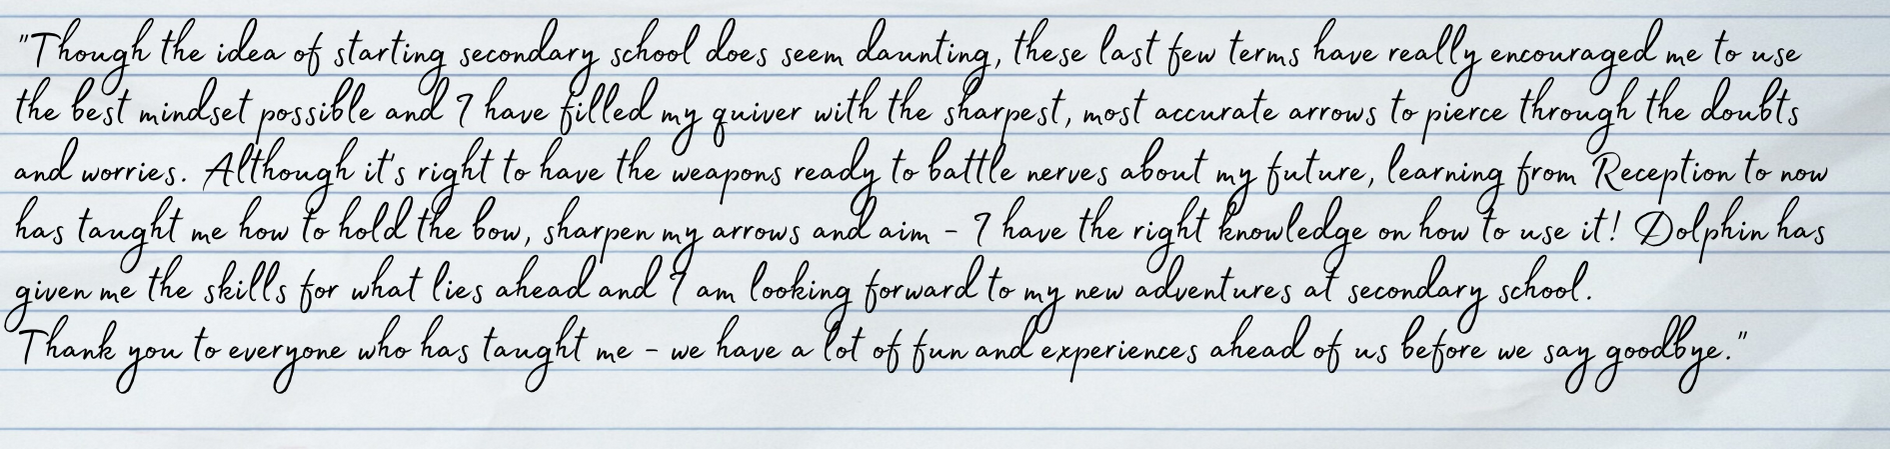 "Though the idea of starting secondary school does seem daunting, these last few terms have really encouraged me to use
the best mindset possible and I have filled my quiver with the sharpest, most accurate arrows to pierce through the doubts
and worries. Although it's right to have the weapons ready to battle nerves about my future, learning from Reception to now
has taught me how to hold the bow, sharpen my arrows and aim - I have the right knowledge on how to use it! Dolphin has
given me the skills for what lies ahead and I am looking forward to my new adventures at secondary school.
Thank you to everyone who has taught me - we have a lot of fun and experiences ahead of us before we say goodbye."